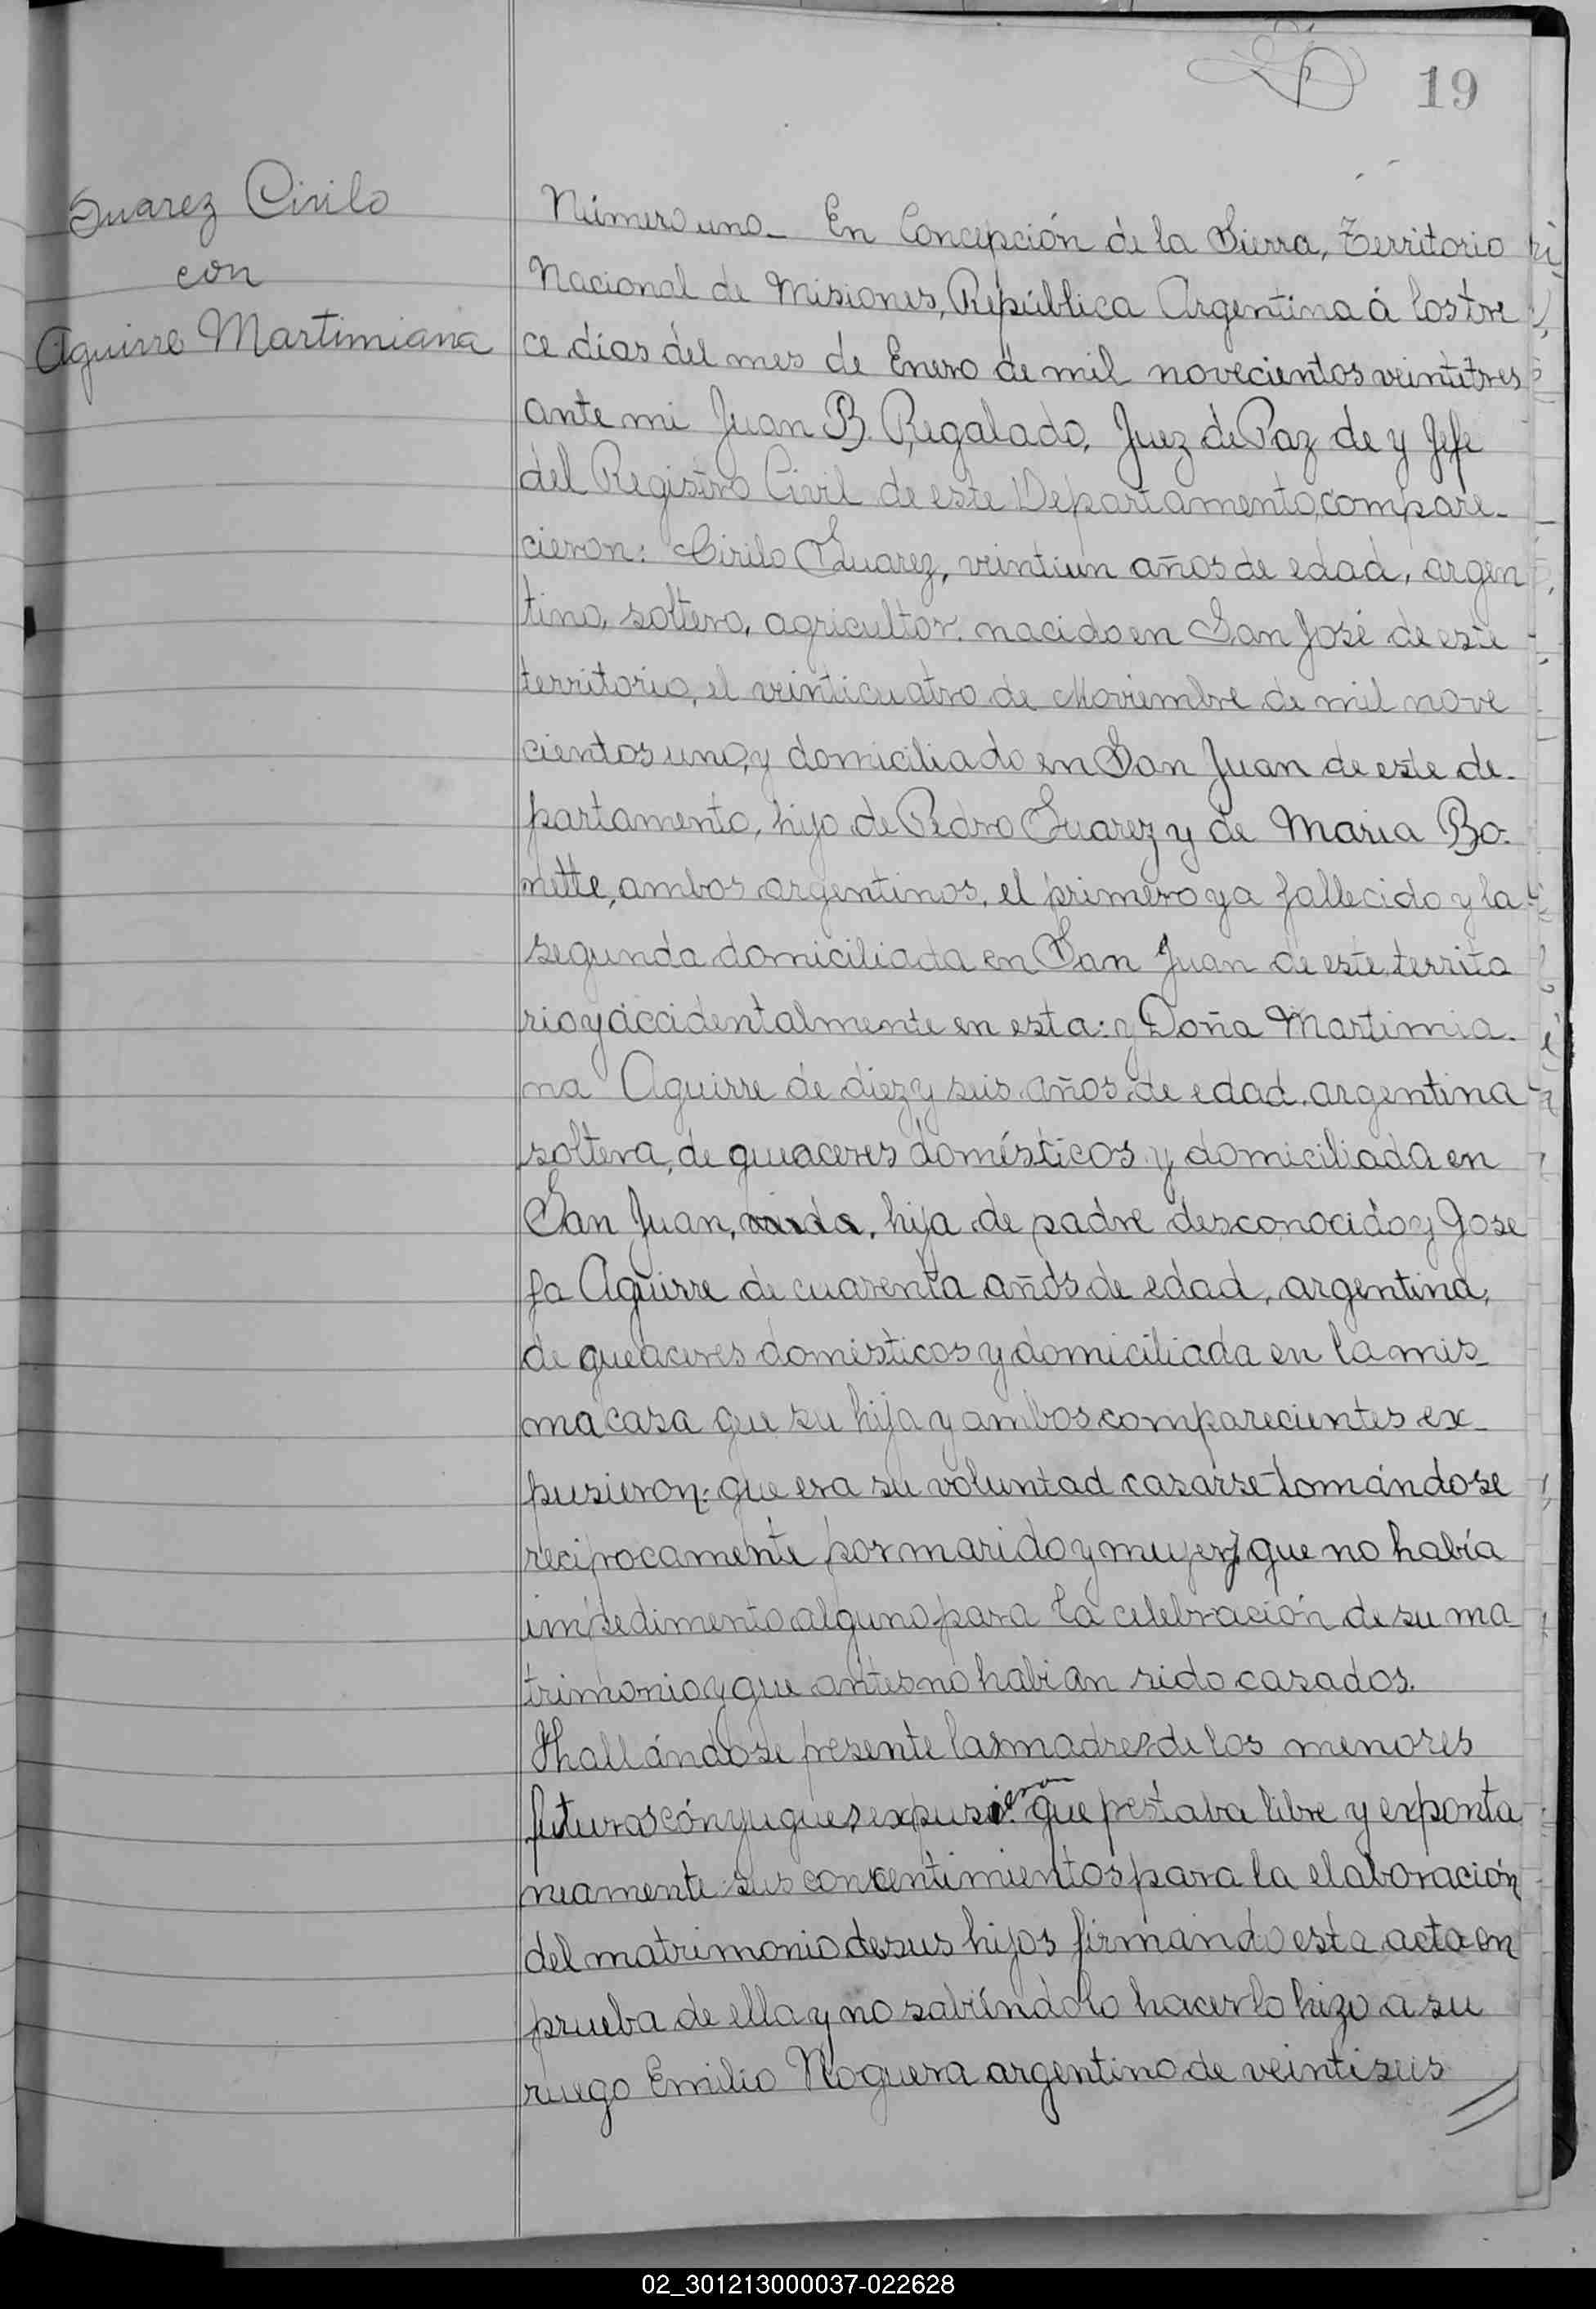 19
Suarez Cirilo
con
Aguirre Martimiana
Número uno_ En Concepción de la Sierra, Territorio
Nacional de Misiones, República Argentina á los tre
ce días del mes de Enero de mil novecientos veintitres
ante mi Juan B. Regalado, Juez de Paz de y Jefe
del Registro Civil de este Departamento, compare-
cieron: Cirilo Suarez, veintiun años de edad, argen
tino, soltero, agricultor, nacido en San José de este
territorio, el veinticuatro de Noviembre de mil nove
cientos uno, y domiciliado en San Juan de este de-
partamento, hijo de Pedro Suarez y de Maria Bo-
nette, ambos argentinos, el primero ya fallecido y la
segunda domiciliada en San Juan de este territo
rio y accidentalmente en esta: y Doña Martimia-
na Aguirre de diez y seis años de edad, argentina
soltera, de queaceres domésticos y domiciliada en
San Juan, hija de padre desconocido y Jose
fa Aguirre de cuarenta años de edad, argentina,
de queaceres domésticos y domiciliada en la mis_
ma casa que su hija y ambos comparecientes ex_
pusieron: que era su voluntad casarse tomándose
reciprocamente por marido y mujer, que no había
impedimento alguno para la celebración de su ma_
trimonio y que antes no habian sido casados.
Hallándose presente las madres de los menores
futuros cónyugues, expusieron que prestaba libre y exponta
neamente sus concentimientos para la elaboración
del matrimonio de sus hijos firmando esta acta en
prueba de ella y no sabiéndolo hacer lo hizo a su
ruego Emilio Noguera argentino de veintiseis
02_301213000037-022628